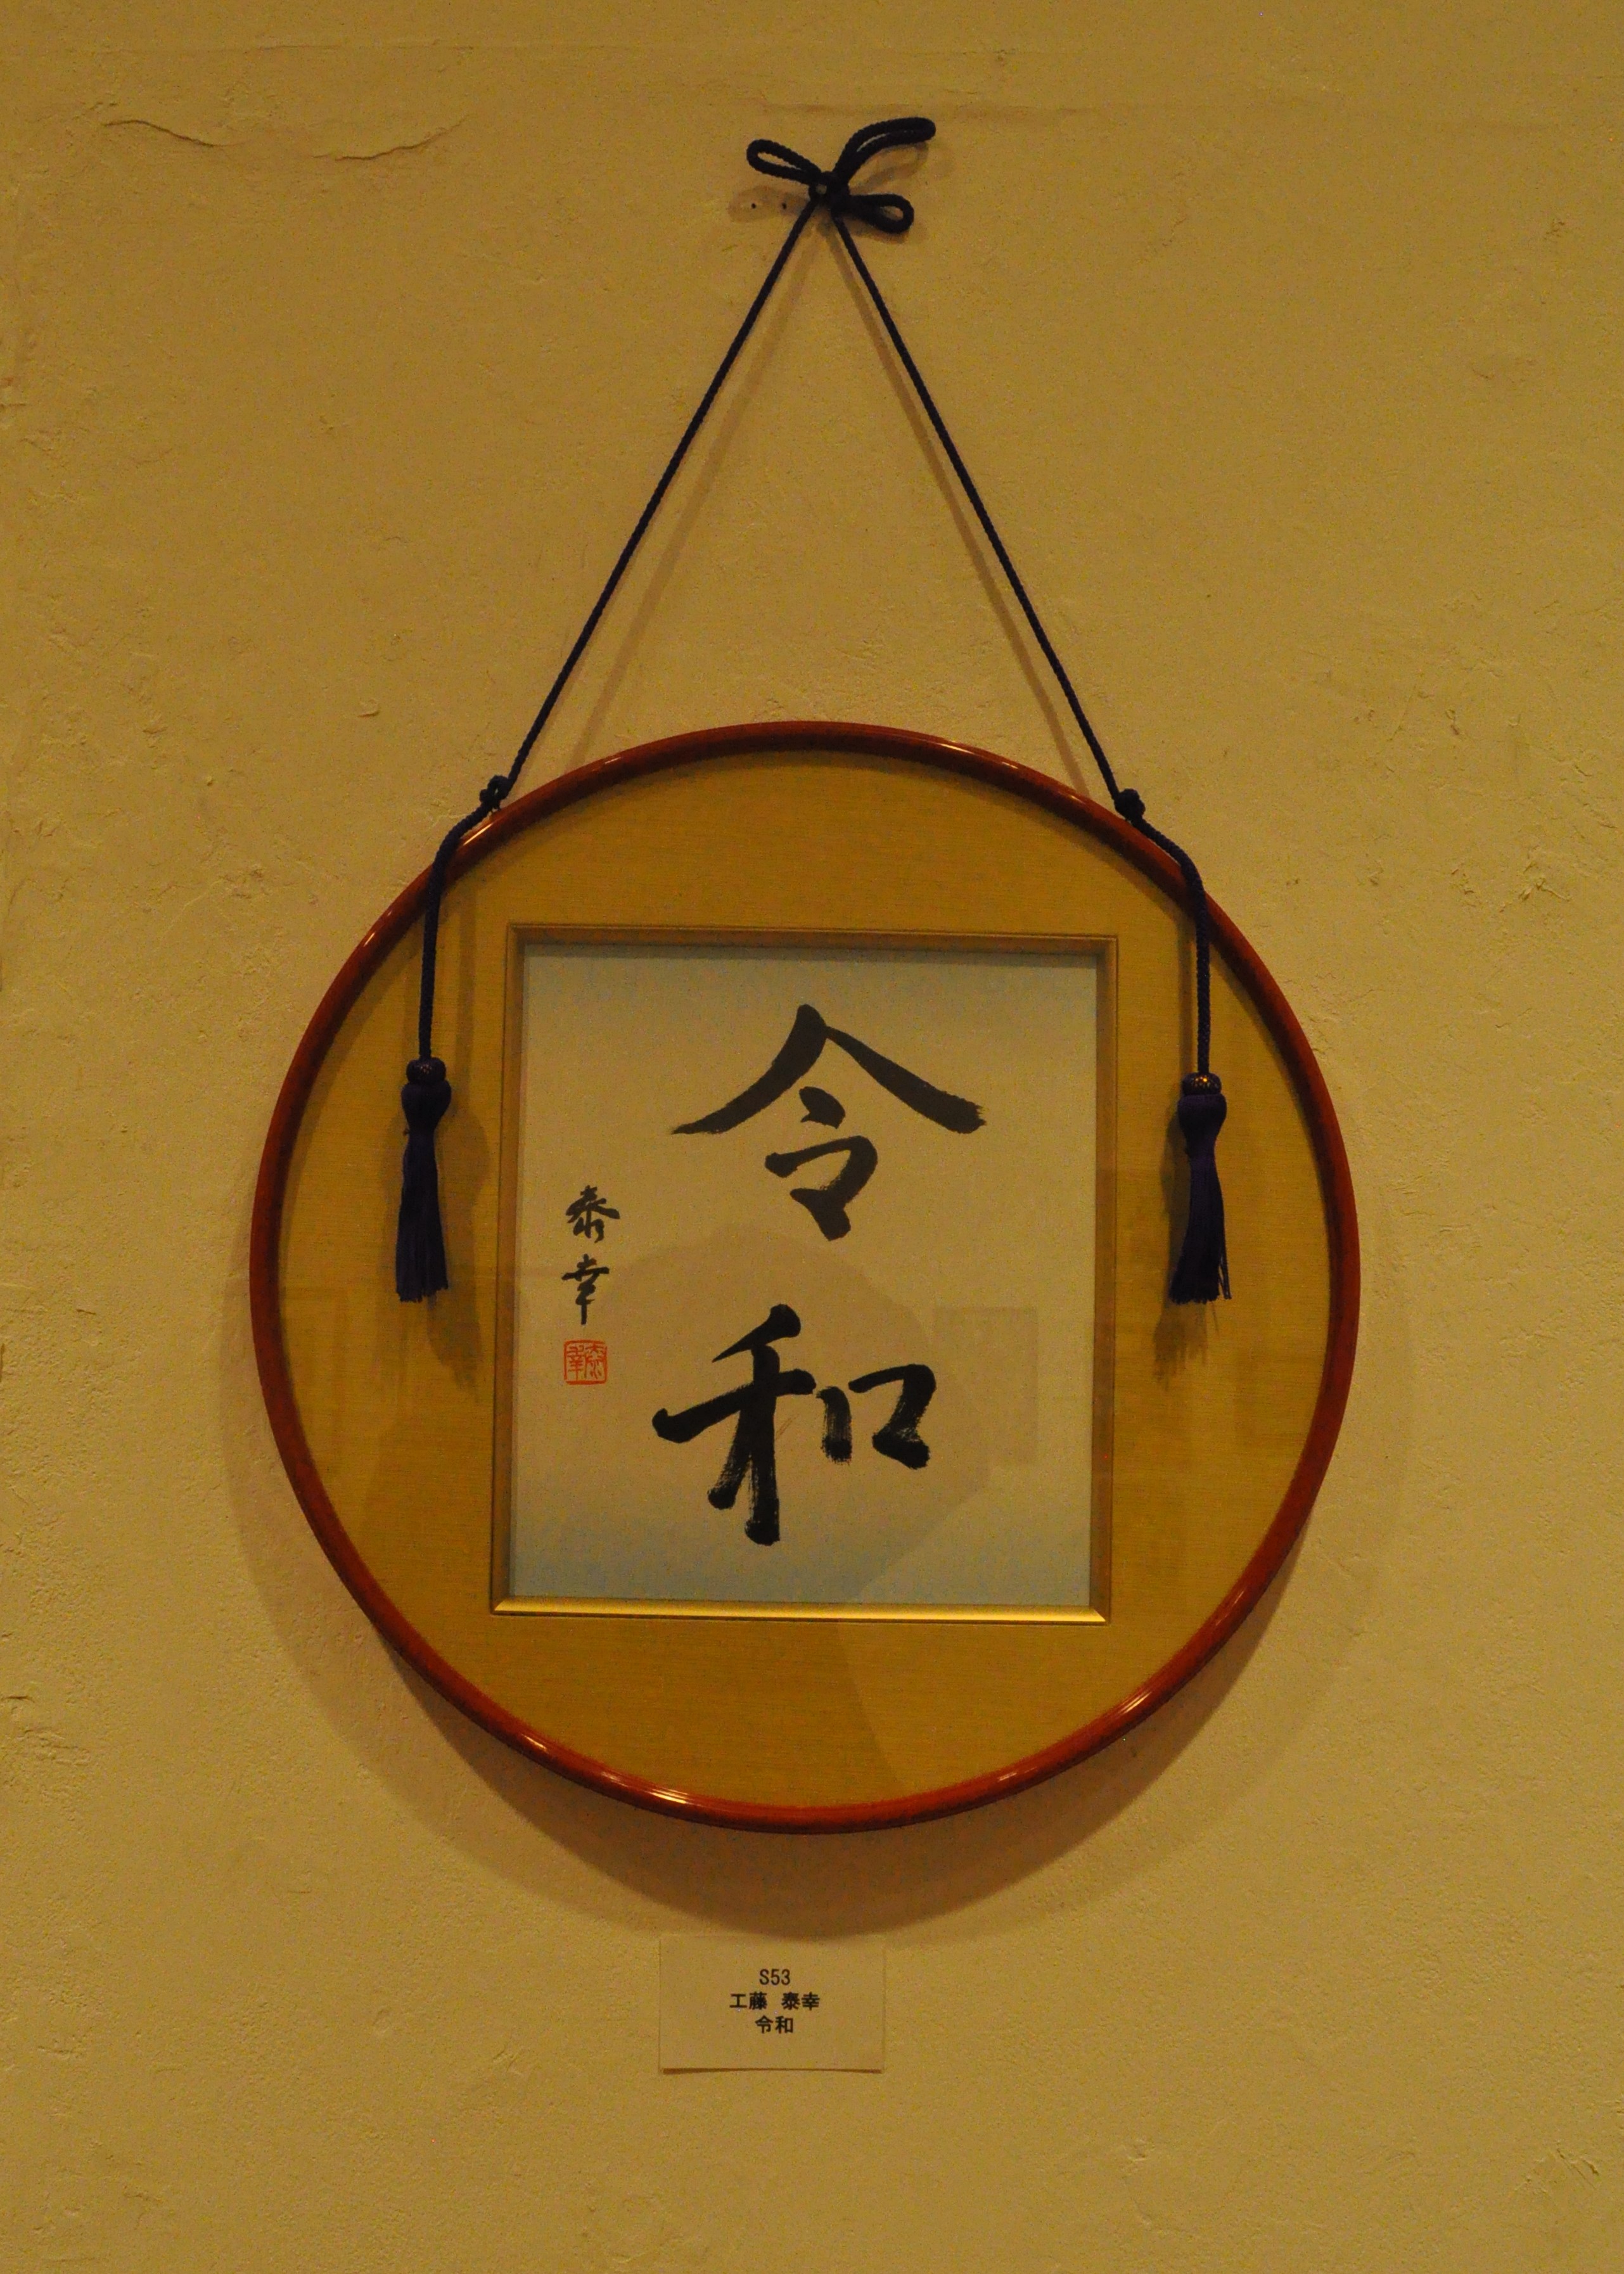 令和
泰幸
泰幸
S53
工藤 泰幸
令和